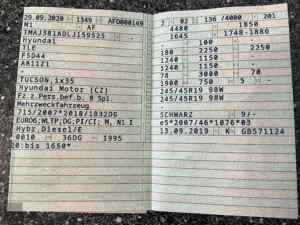 29.09.2020 1349 AFD000149
M1 AF
TMAJ381ADLJ159525
Hyundai
TLE
F5D44
A811Z1
TUCSON,ix35
Hyundai Motor (CZ)
Fz.z.Pers.bef.b. 8 Spl.
Mehrzweckfahrzeug
715/2007*2018/1832DG
EURO6;WLTP;DG;PI/CI; M, N1 I
Hybr.Diesel/E
0010 36DG 1995
20:bis 1650*
2 02 136 /4000 201
4480 1850
1645 1748-1886
100
180 2250 2250
1240 1150
1240 1150
78 3000 70
1900 750 5
245/45R19 98W
245/45R19 98W
SCHWARZ 9/-
e5*2007/46*1076*03
13.09.2019 K GB571124